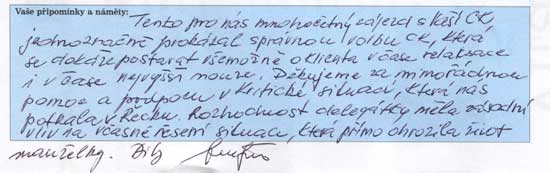 Vaše připomínky a náměty:
Tento pro nás mnohočetný zájezd s Vaší CK,
jednoznačně prokázal správnou volbu CK, která
se dokáže postarat všemožně o klienta v čase relaxace
i v čase nejvyšší nouze. Děkujeme za mimořádnou
pomoc a podporu v kritické situaci, která nás
potkala v Řecku. Rozhodnost delegátky měla zásadní
vliv na včasné řešení situace, která přímo ohrozila život
manželky. Díky